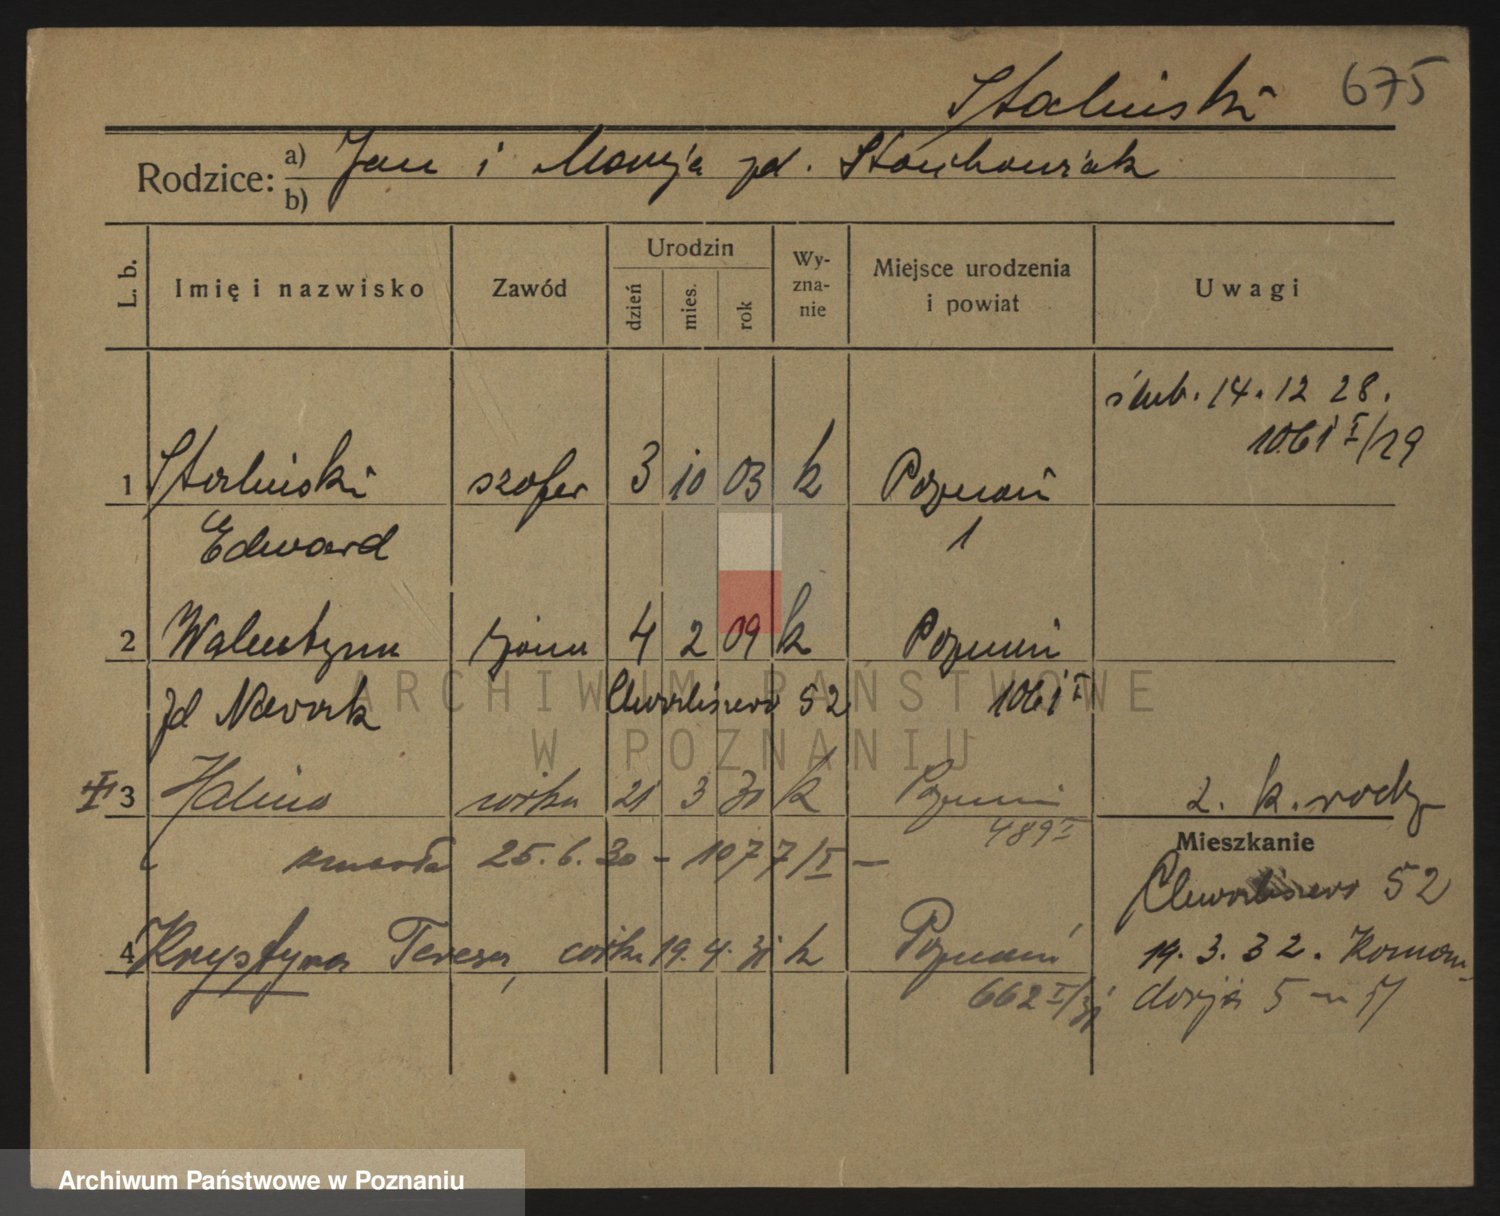 Staliński 675
Rodzice: a) Jan i Maryja zd. Stachowiak
b)
L. b. Imię i nazwisko Zawód Urodzin dzień mies. rok Wy-zna-nie Miejsce urodzenia i powiat Uwagi
ślub. 14. 12 28.
1061 I/29
1 Staliński szofer 3 10 03 k Poznań
Edward 1
2 Walentyna żona 4 2 09 k Poznań
zd Nawrot Chwaliszewo 52 1061 I
3 Halina córka 21 3 30 k Poznań 2. k. rodz
489 I
zmarła 25. 6. 30 – 1977/I –
Mieszkanie
Chwaliszewo 52
4 Krystyna Teresa, córka 19. 4. 31 k Poznań 19. 3. 32. Koman-
662 I/31 dorja 5 m 17
ARCHIWUM PAŃSTWOWE
W POZNANIU
Archiwum Państwowe w Poznaniu